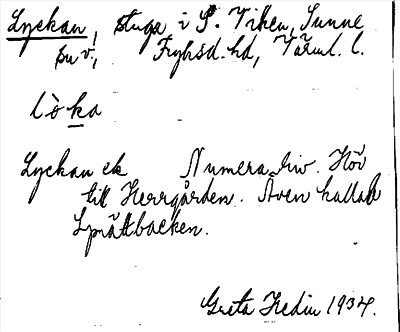 Lyckan, stuga i S. Viken, Sunne
sn v., Fryksd. hd, Värml. l.
lò̀ka
Lyckan ek Numera riv. Hör
till Herrgården. Även kallad
Sprättbacken.
Greta Hedin 1934.